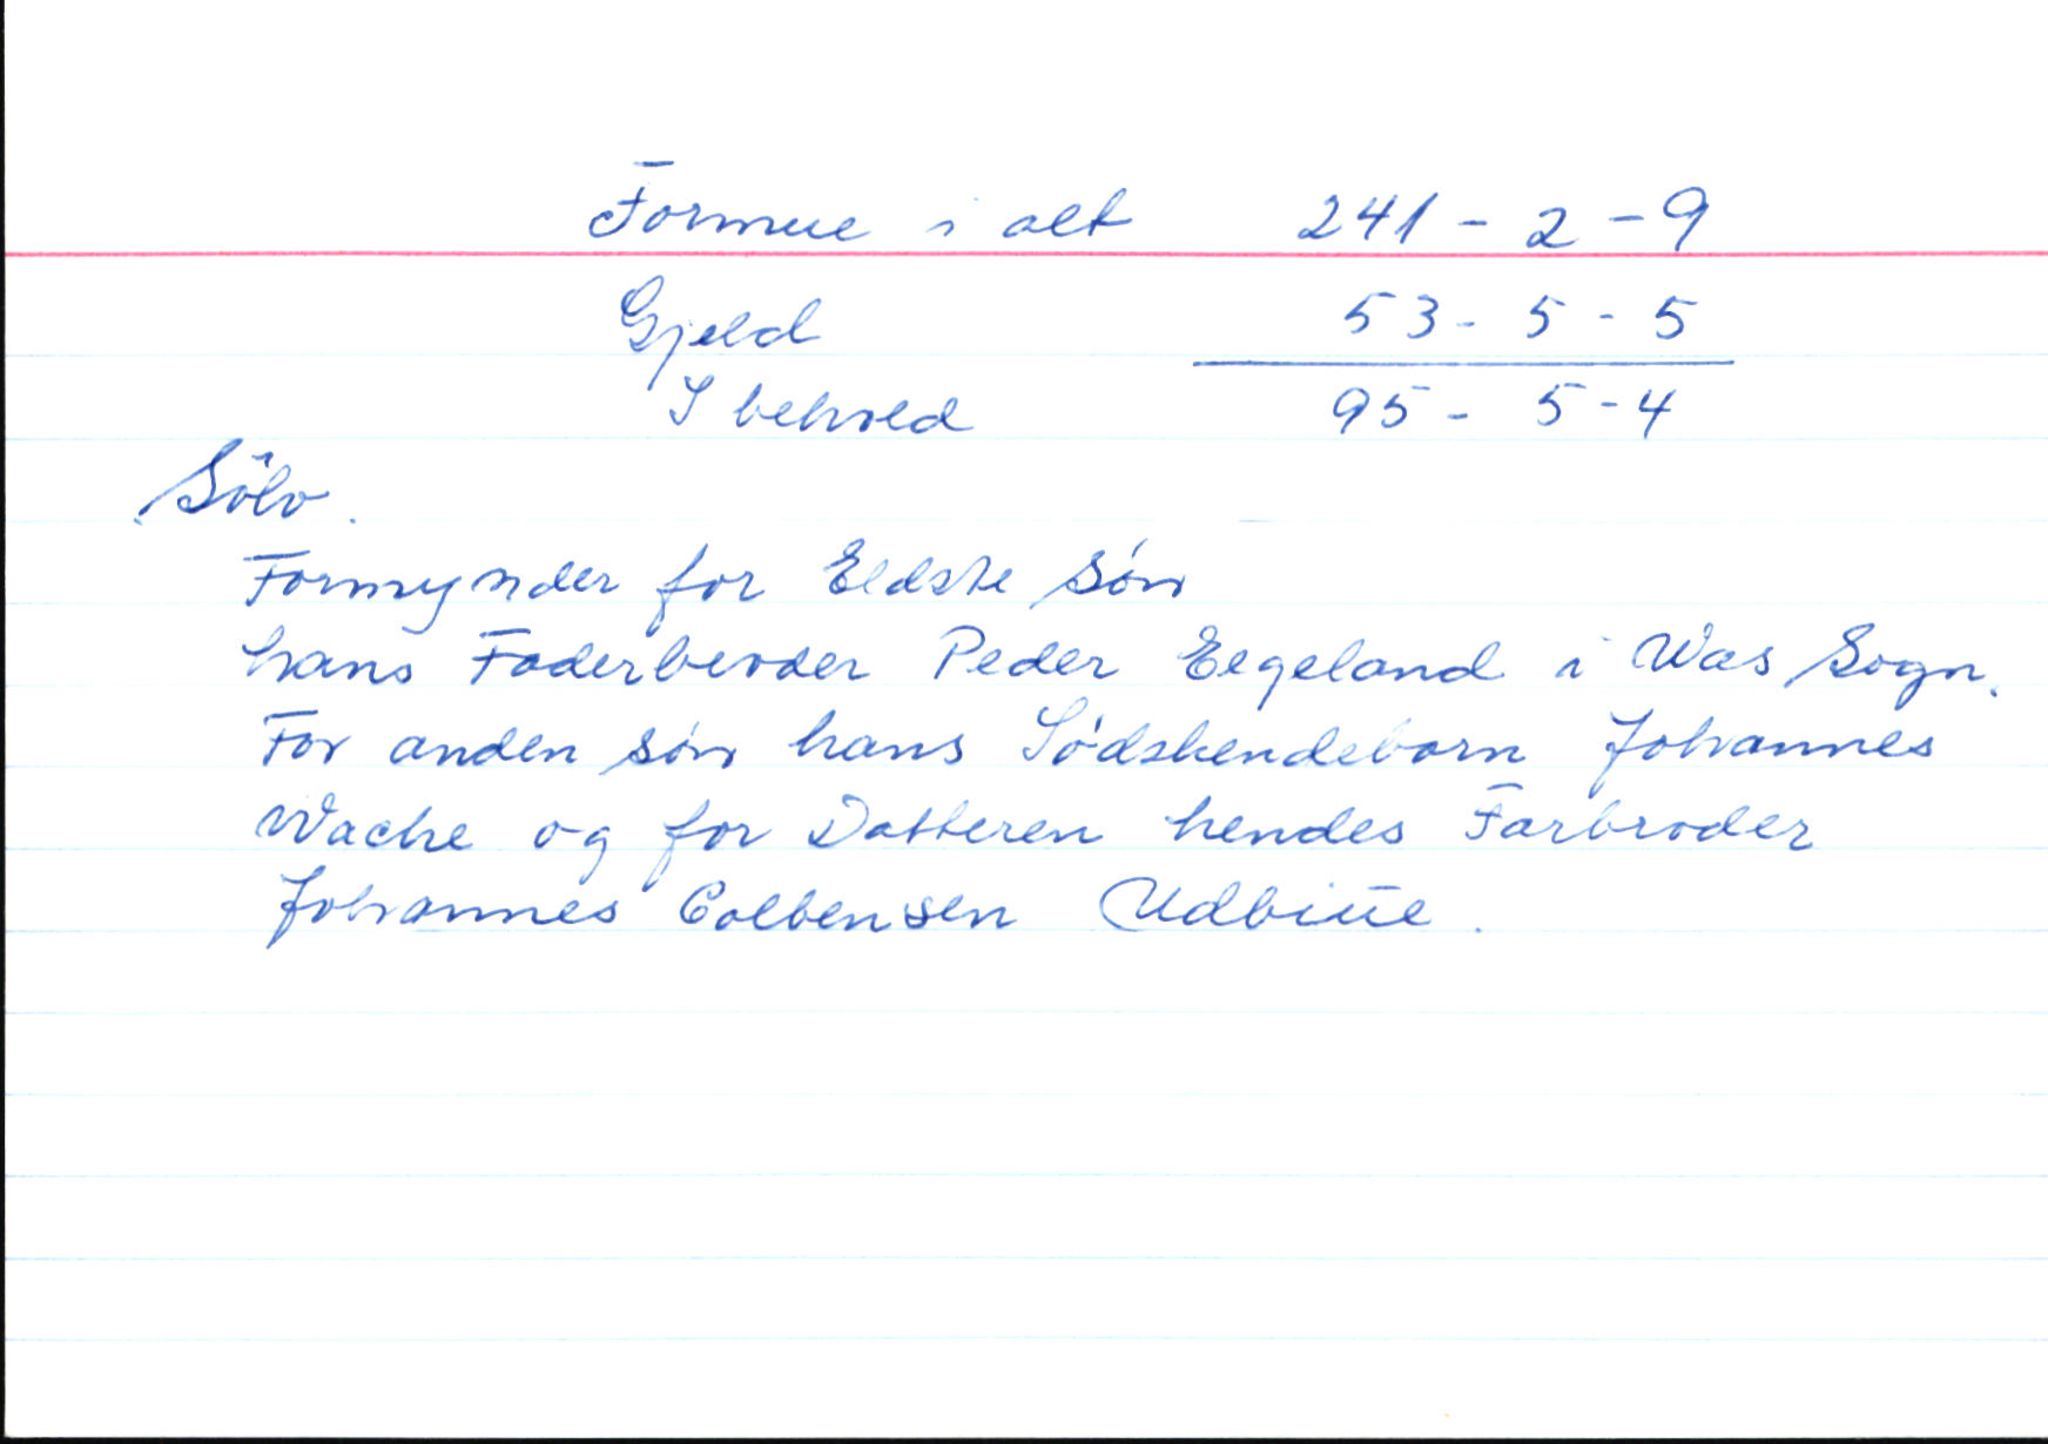 Formue i alt 241 - 2 - 9
Gjeld 53 - 5 - 5
I behold 95 - 5 - 4
Sölv.
Formynder for Eldste Søn
hans Faderbroder Peder Eegeland i Was Sogn.
For anden søn hans Sødskendebarn Johannes
Wache og for Datteren hendes Farbroder
Johannes Colbensen Udbiüe.